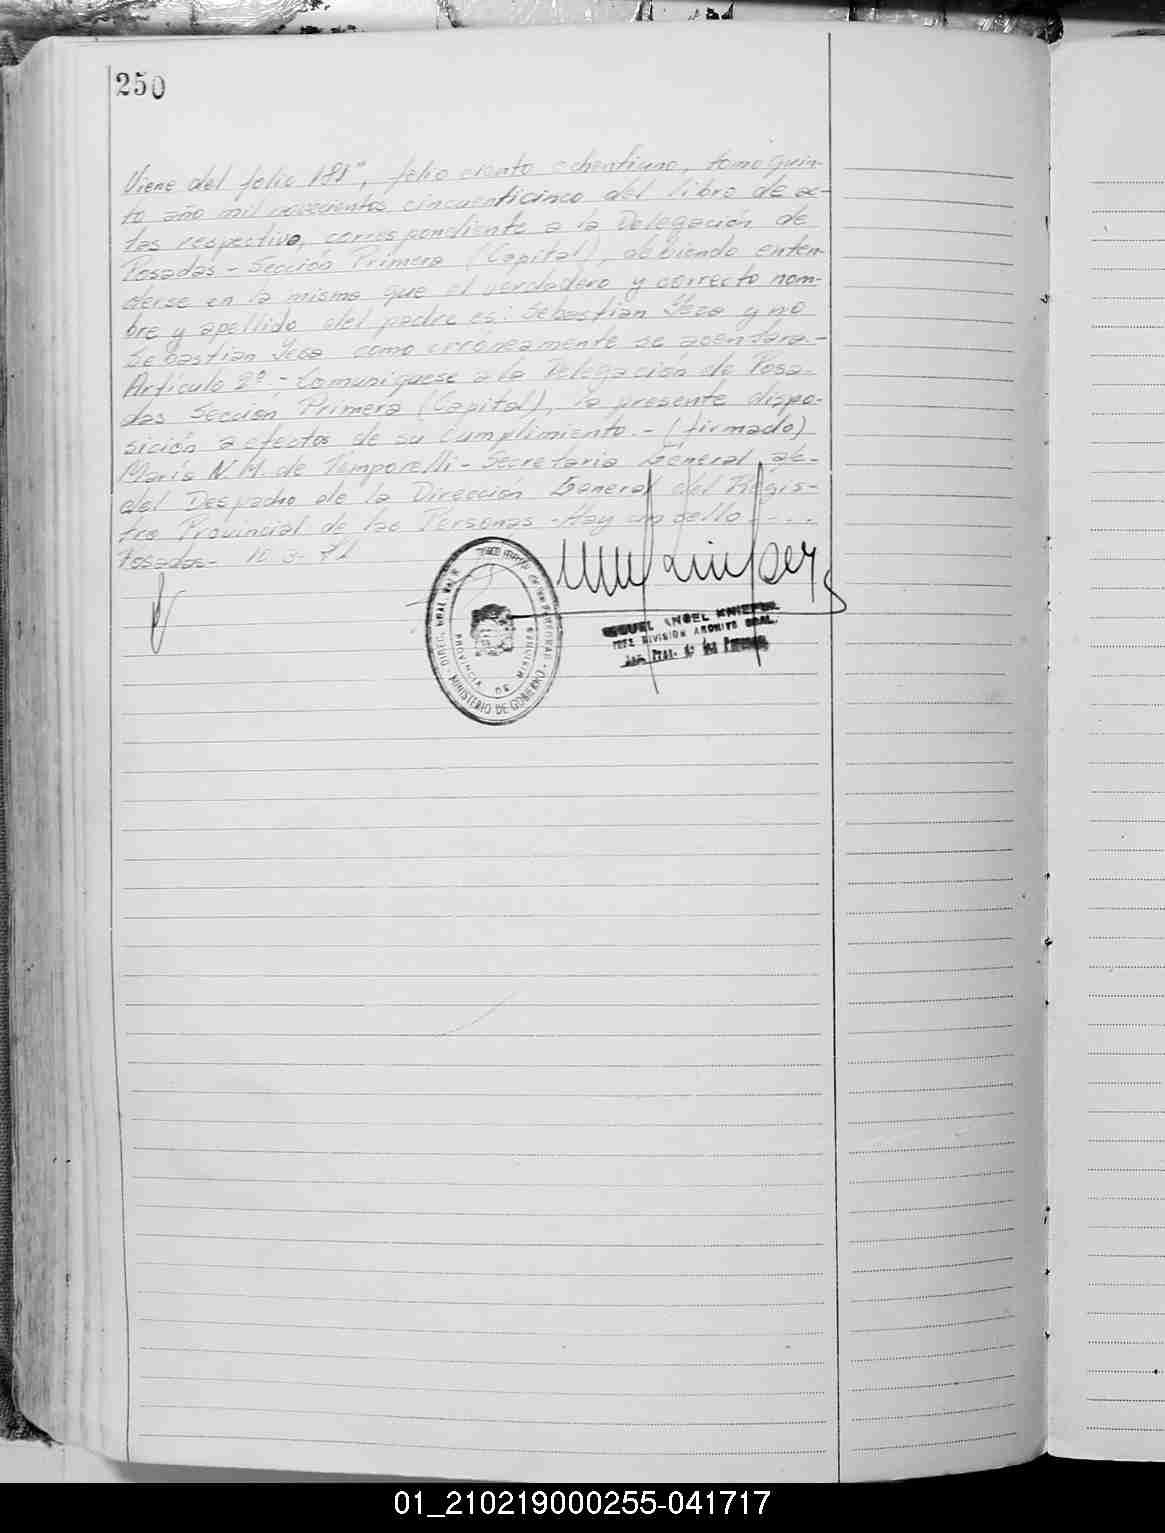 250
Viene del folio 181", folio ciento ochentiuno, tomo quin-
to año mil novecientos cincuenticinco del libro de ac-
tas respectivo, correspondiente a la Delegación de
Posadas - Sección Primera (Capital), debiendo enten-
derse en la misma que el verdadero y correcto nom-
bre y apellido del padre es: Sebastian Yeza y no
Sebastian como erroneamente se asentara.-
Artículo 2º - Comuníquese a la Delegación de Posa-
das Sección Primera (Capital), la presente dispo-
sición a efectos de su cumplimiento. - (firmado)
María N. M. de Temporelli - Secretaria General
del Despacho de la Dirección General del Regis-
tro Provincial de las Personas - Hay un sello - - -
Posadas - 10-3-
DIREC. GRAL.
DE LAS PERSONAS
MINISTERIO DE GOBIERNO
PROVINCIA DE MISIONES
MIGUEL ANGEL
JEFE DIVISION ARCHIVO GRAL.
Prov. de las Personas
01_210219000255-041717